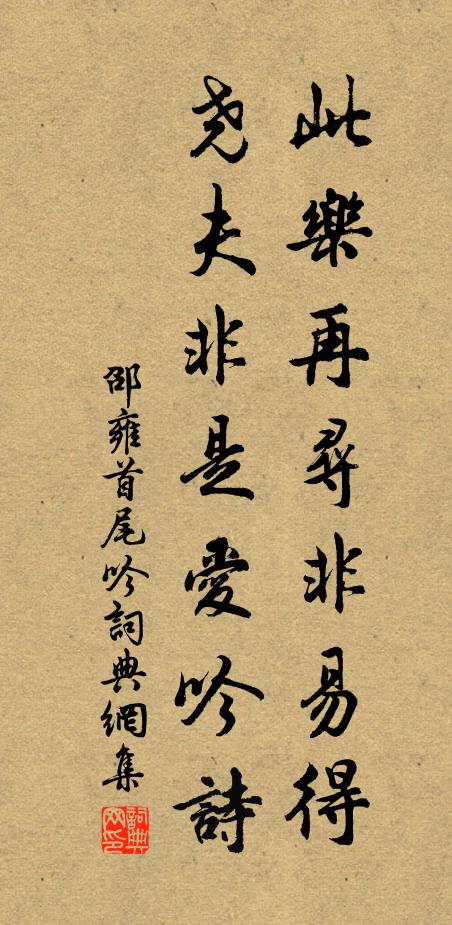 此樂再尋非易得
尧夫非是愛吟詩
邵雍首尾吟詞典網集
詞典網印